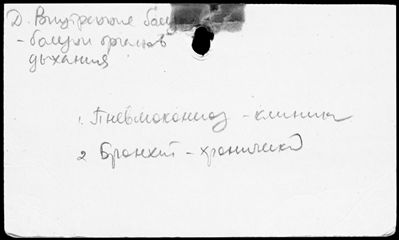 Д. Внутренние бол
- болезни органов
дыхания
1. Пневмокониоз - клиника
2 Бронхит - хронический